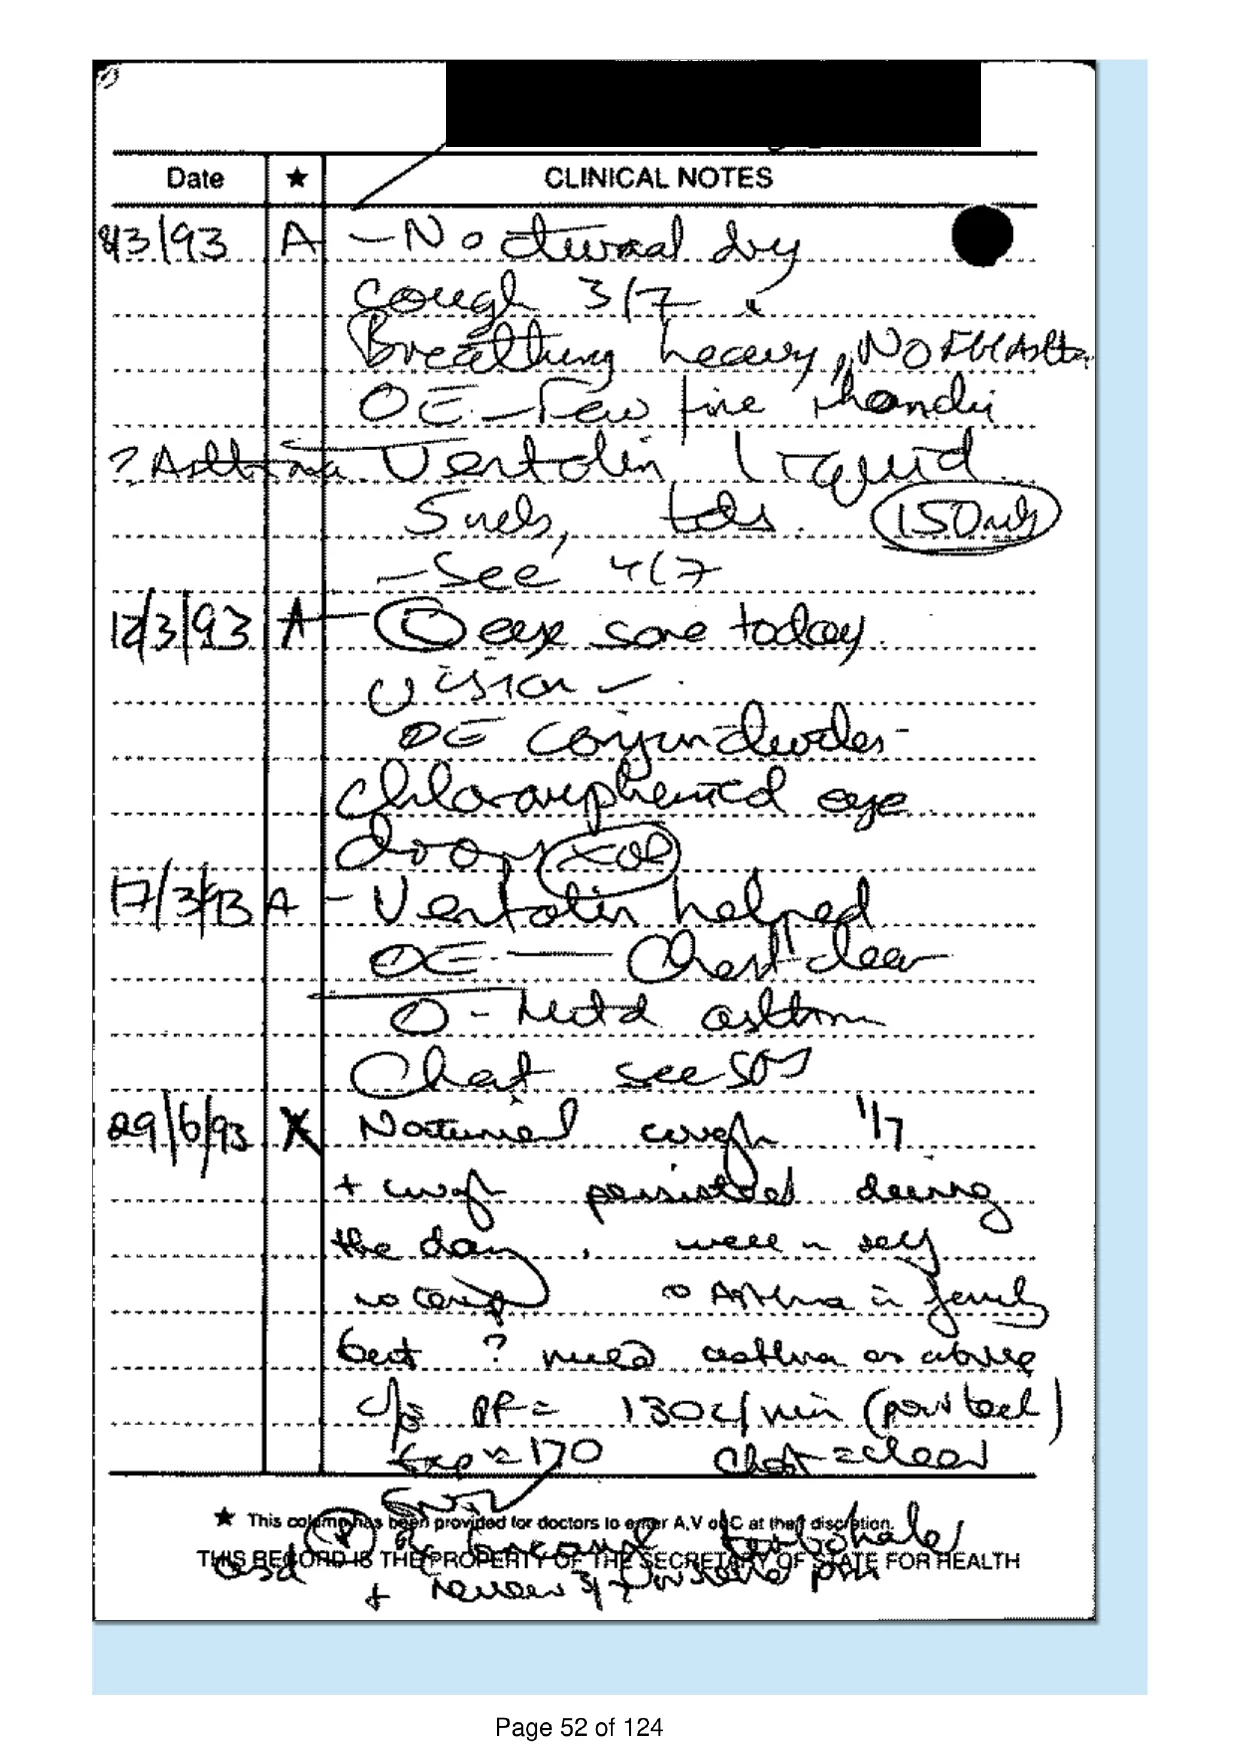 Date ★ CLINICAL NOTES
3/93 A – Nocturnal dry
cough 3/7
Breathing heavy, No FH Asthma
OE – Few fine rhonchi
? Asthma Ventolin liquid
5mls, tds. 150mls
– See 4/7
12/3/93 A – eye sore today.
Vision ✓.
OE conjunctivitis
chloramphenicol eye
drops
17/3/93 A – Ventolin helped
OE – Chest clear
– Mild asthma
Chat see SOS
29/6/93 Nocturnal cough 1/7
+ cough persisted during
the day, well in self
no temp o Asthma in family
but ? mild asthma as above
PF = 130 l/min (poor tech)
Exp = 170 Chest = clear
★ This column has been provided for doctors to enter A,V or C at their discretion.
turbohaler
THIS RECORD IS THE PROPERTY OF THE SECRETARY OF STATE FOR HEALTH
+ review 3/7
Page 52 of 124